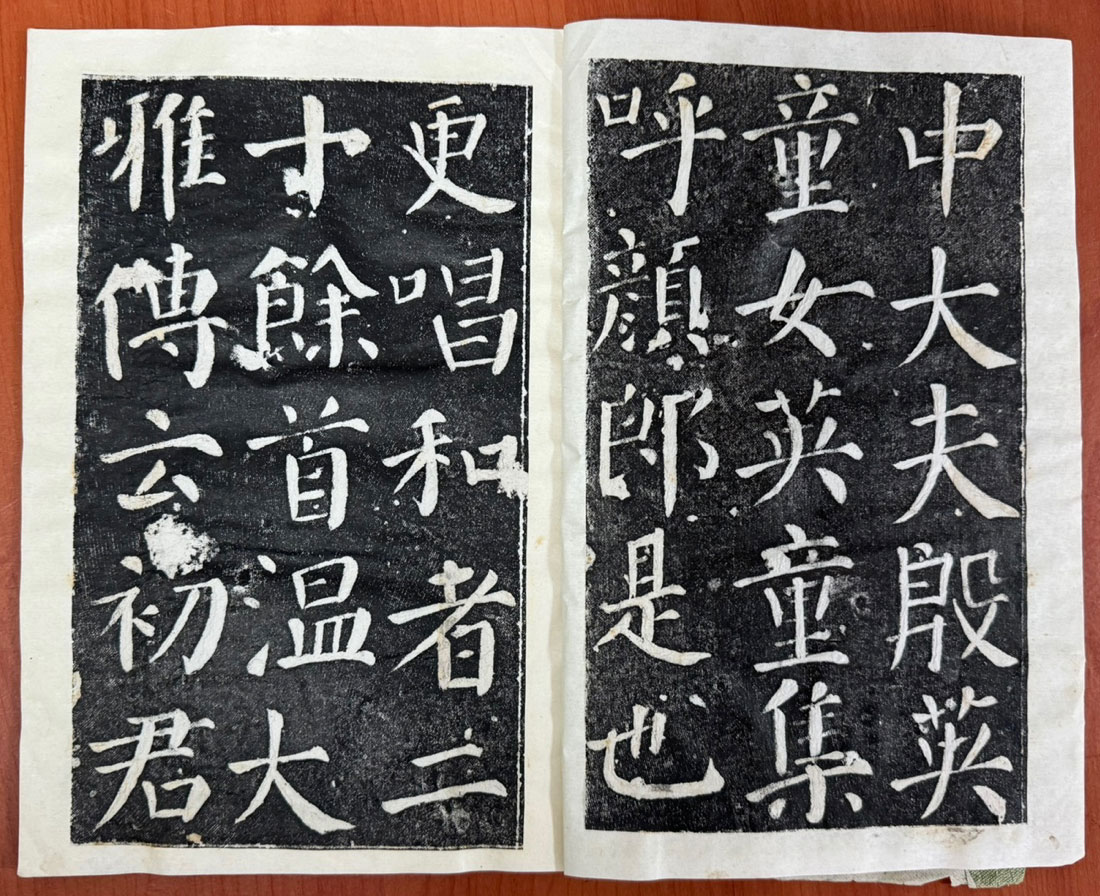 中大夫殷英
童女英童集
呼顏郎是也
更唱和者二
十餘首温大
雅傳云初君